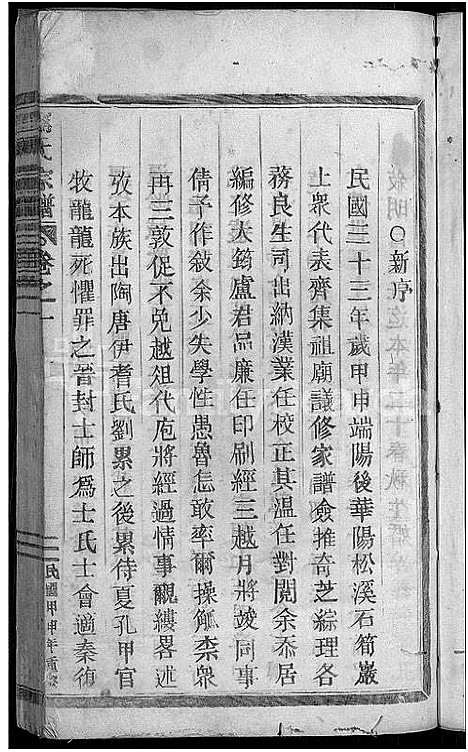 ○新序
民國三十三年歲甲申端陽後華陽松溪石筍巖
上衆代表齊集祖廟議修家譜僉推奇芝綜理各
務良生司出納漢業任校正其溫任對閱余忝居
編修大鈞盧君品廉任印刷經三越月將竣同事
倩予作敘余少失學性愚魯怎敢率爾操觚柰衆
再三敦促不免越俎代庖將經過情事覼縷畧述
攷本族出陶唐伊耆氏劉累之後累侍夏孔甲官
牧龍龍死懼罪之晉封士師爲士氏士會適秦復
氏宗譜 卷之一
民國甲申年重修